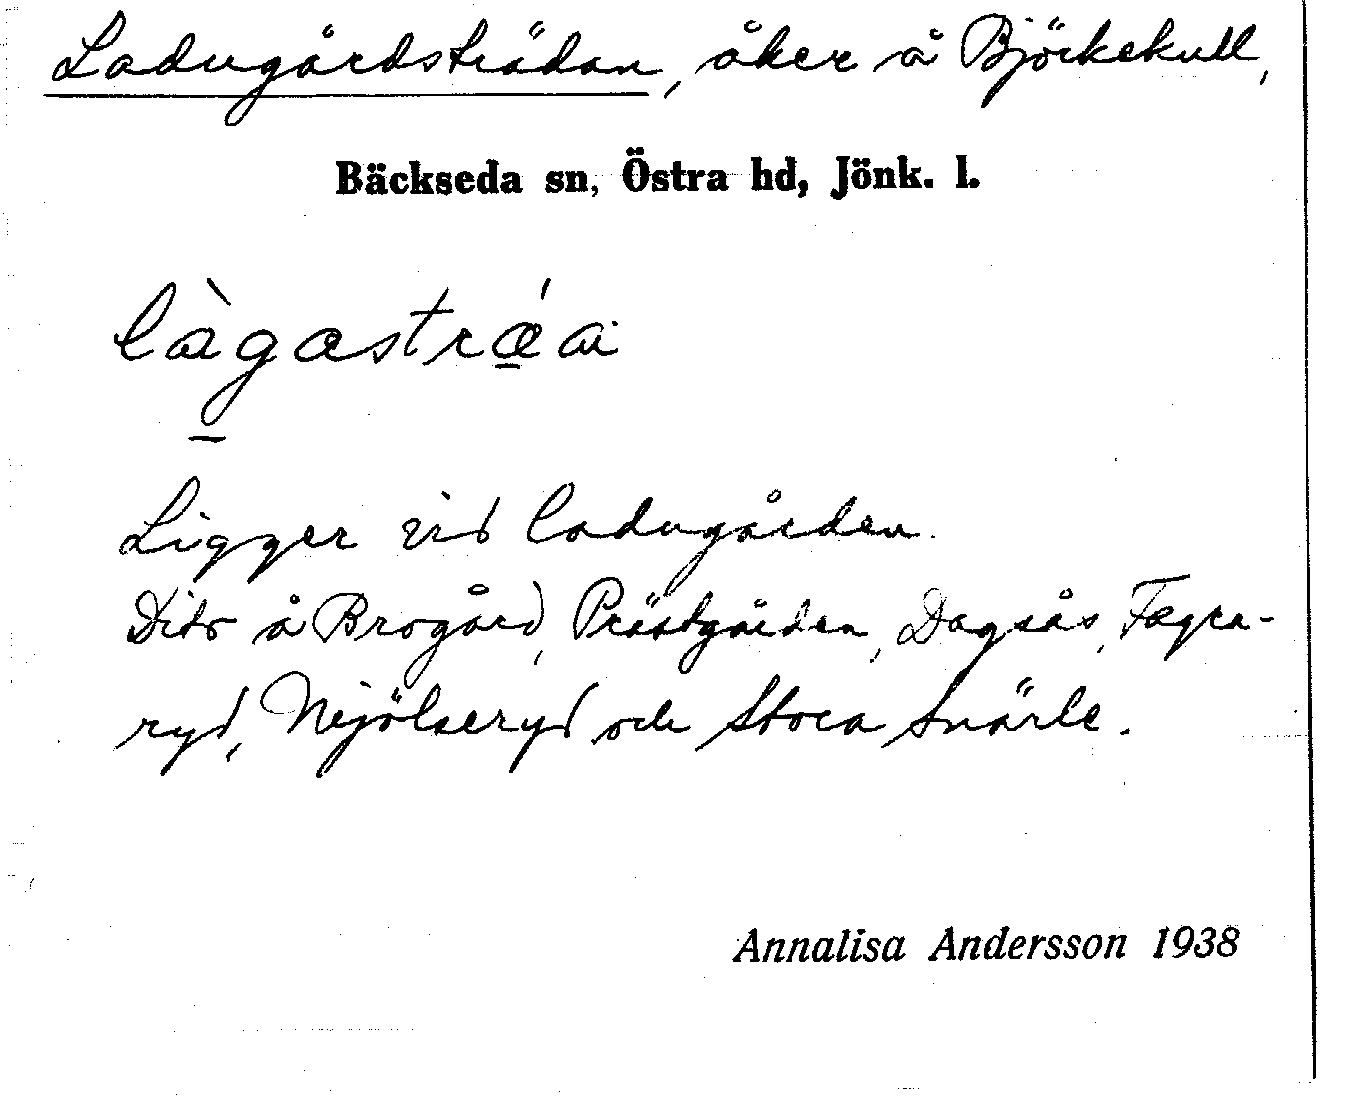 Ladugårdsträdan, åker å Björkekull,
Bäckseda sn, Östra hd, Jönk. l.
làgastrǽa
Ligger vid ladugården.
Dito å Brogård, Prästgården, Dagsås, Fagra-
ryd, Mjölseryd och Stora Snärle.
Annalisa Andersson 1938